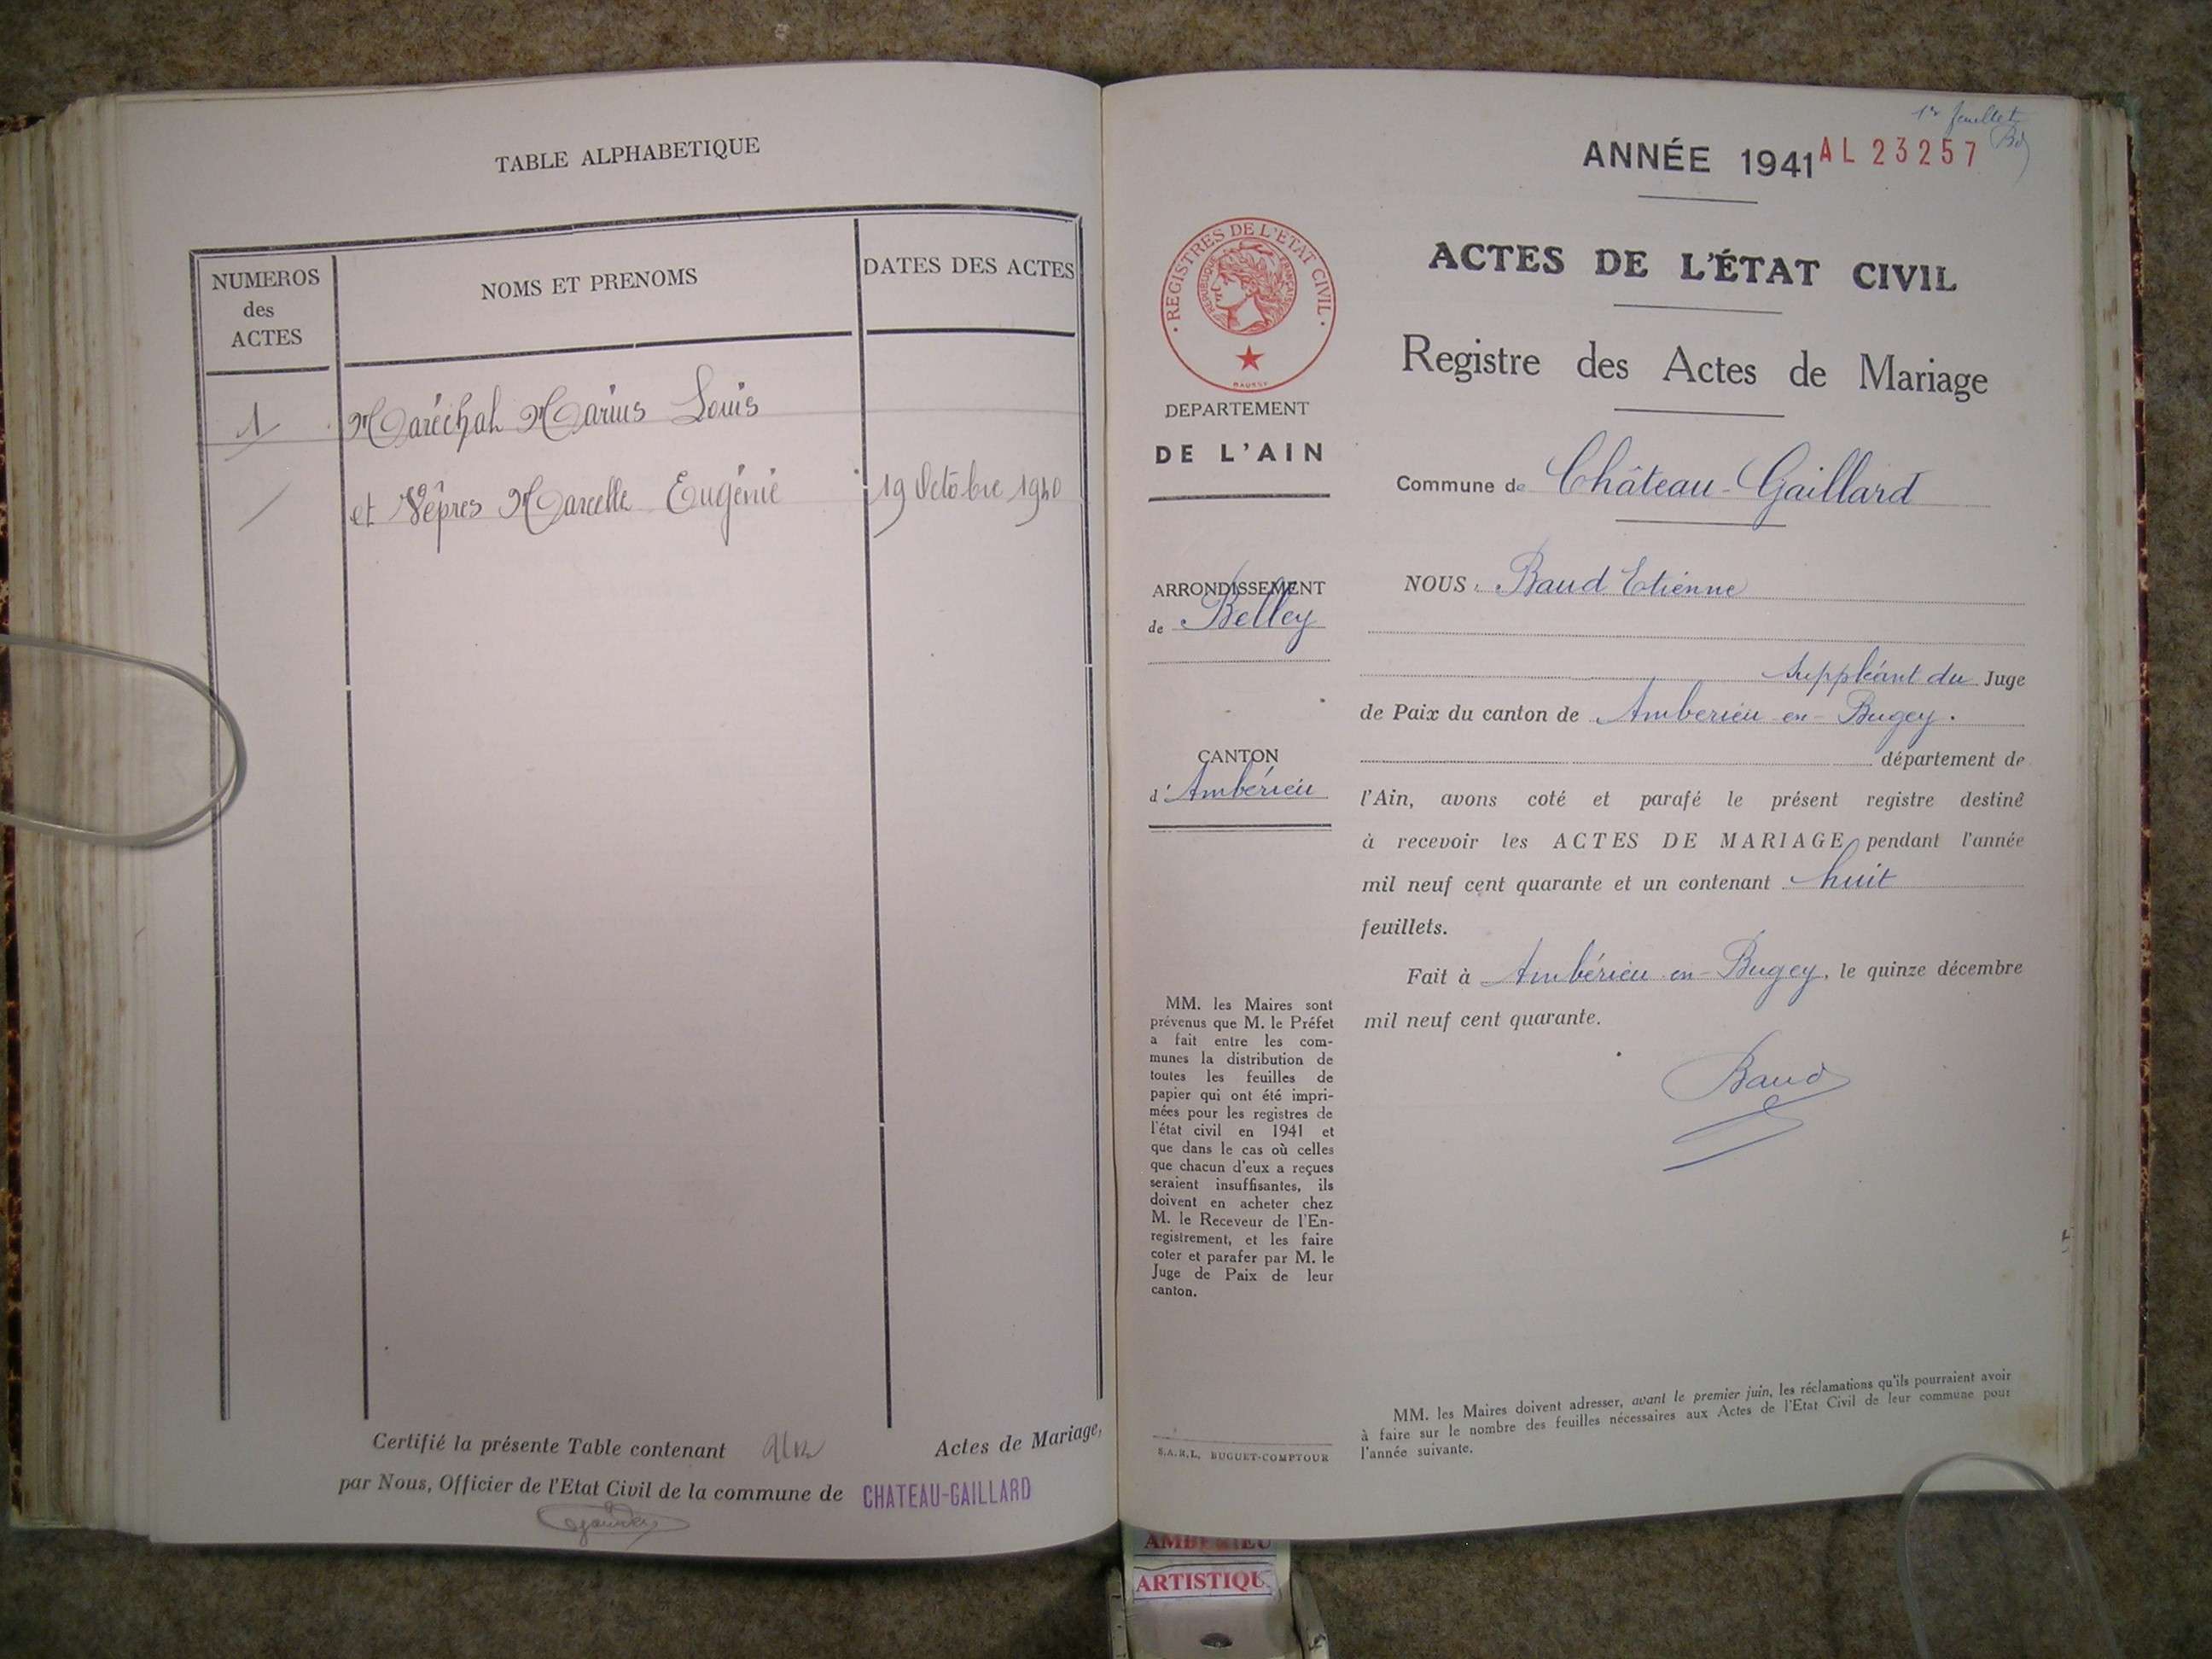 TABLE ALPHABETIQUE
NUMEROS
des
ACTES
NOMS ET PRENOMS
DATES DES ACTES
1
Maréchal Marius Louis
et Vêpres Marcelle Eugénie
19 Octobre 1940
Certifié la présente Table contenant
Actes de Mariage,
par Nous, Officier de l'Etat Civil de la commune de CHATEAU-GAILLARD
1er feuillet
ANNÉE 1941 AL 23257
· REGISTRES DE L'ETAT CIVIL ·
REPUBLIQUE FRANÇAISE
DEPARTEMENT
DE L'AIN
ARRONDISSEMENT
de Belley
CANTON
d'Ambérieu
MM. les Maires sont
prévenus que M. le Préfet
a fait entre les com-
munes la distribution de
toutes les feuilles de
papier qui ont été impri-
mées pour les registres de
l'état civil en 1941 et
que dans le cas où celles
que chacun d'eux a reçues
seraient insuffisantes, ils
doivent en acheter chez
M. le Receveur de l'En-
registrement, et les faire
coter et parafer par M. le
Juge de Paix de leur
canton.
S.A.R.L. BUGUET-COMPTOUR
ACTES DE L'ÉTAT CIVIL
Registre des Actes de Mariage
Commune de Château-Gaillard
NOUS : Baud Etienne
suppléant du Juge
de Paix du canton de Ambérieu-en-Bugey.
département de
l'Ain, avons coté et parafé le présent registre destiné
à recevoir les ACTES DE MARIAGE pendant l'année
mil neuf cent quarante et un contenant huit
feuillets.
Fait à Ambérieu-en-Bugey, le quinze décembre
mil neuf cent quarante.
Baud
MM. les Maires doivent adresser, avant le premier juin, les réclamations qu'ils pourraient avoir
à faire sur le nombre des feuilles nécessaires aux Actes de l'Etat Civil de leur commune pour
l'année suivante.
AMBERIEU
ARTISTIQU